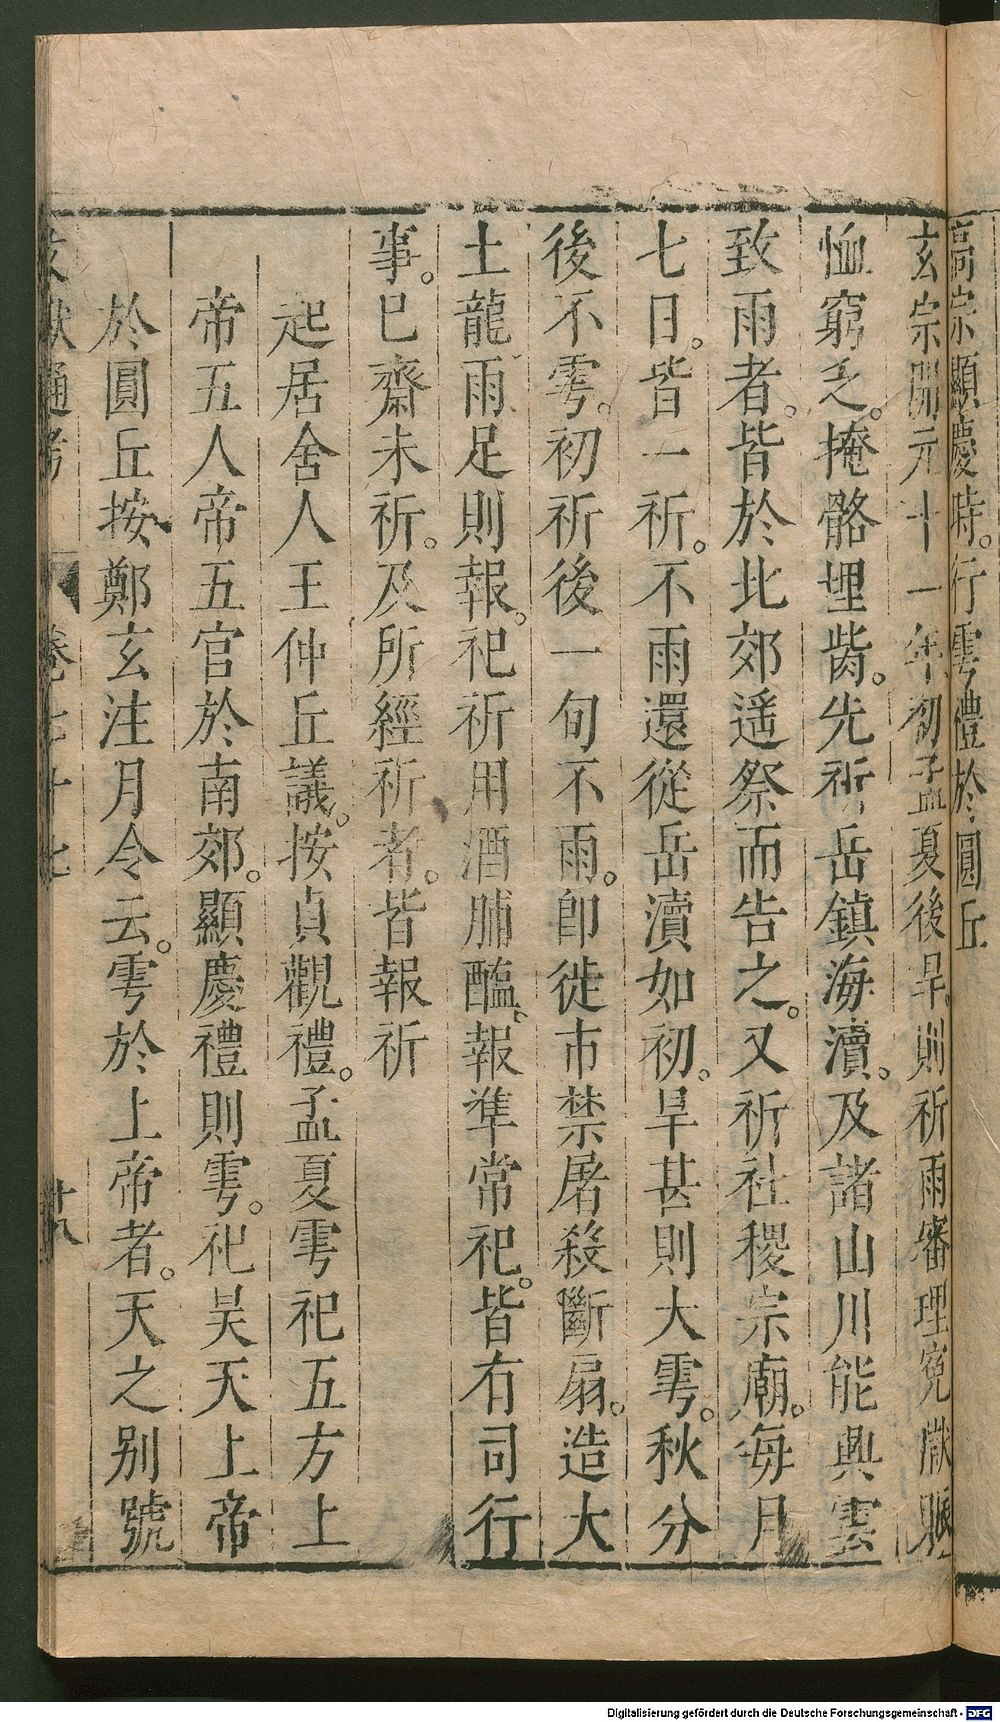 高宗顯慶時。行雩禮於圓丘
玄宗開元十一年初孟夏後旱則祈雨審理寃獄賑
恤窮乏。掩骼埋胔。先祈岳鎮海瀆。及諸山川能興雲
致雨者。皆於北郊遥祭而告之。又祈社稷宗廟。每月
七日。皆一祈。不雨還從岳瀆如初。旱甚則大雩。秋分
後不雩。初祈後一旬不雨。卽徙市禁屠殺斷扇。造大
土龍雨足則報。祀祈用酒脯醢。報準常祀。皆有司行
事。巳齋未祈。及所經祈者。皆報祈
起居舍人王仲丘議。按貞觀禮。孟夏雩祀五方上
帝五人帝五官於南郊。顯慶禮則雩。祀昊天上帝
於圓丘按鄭玄注月令云。雩於上帝者。天之别號
文獻通考 卷七十七 十八
Digitalisierung gefördert durch die Deutsche Forschungsgemeinschaft - DFG